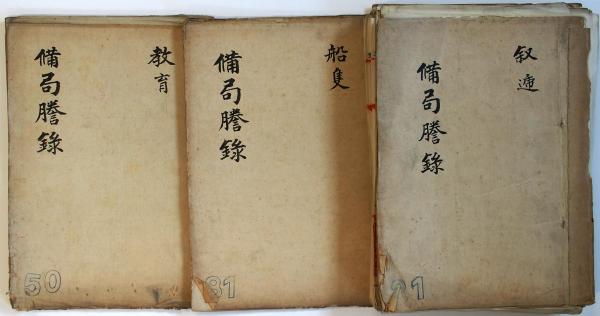 教育
備局謄錄
50
船隻
備局謄錄
81
叙逓
備局謄錄